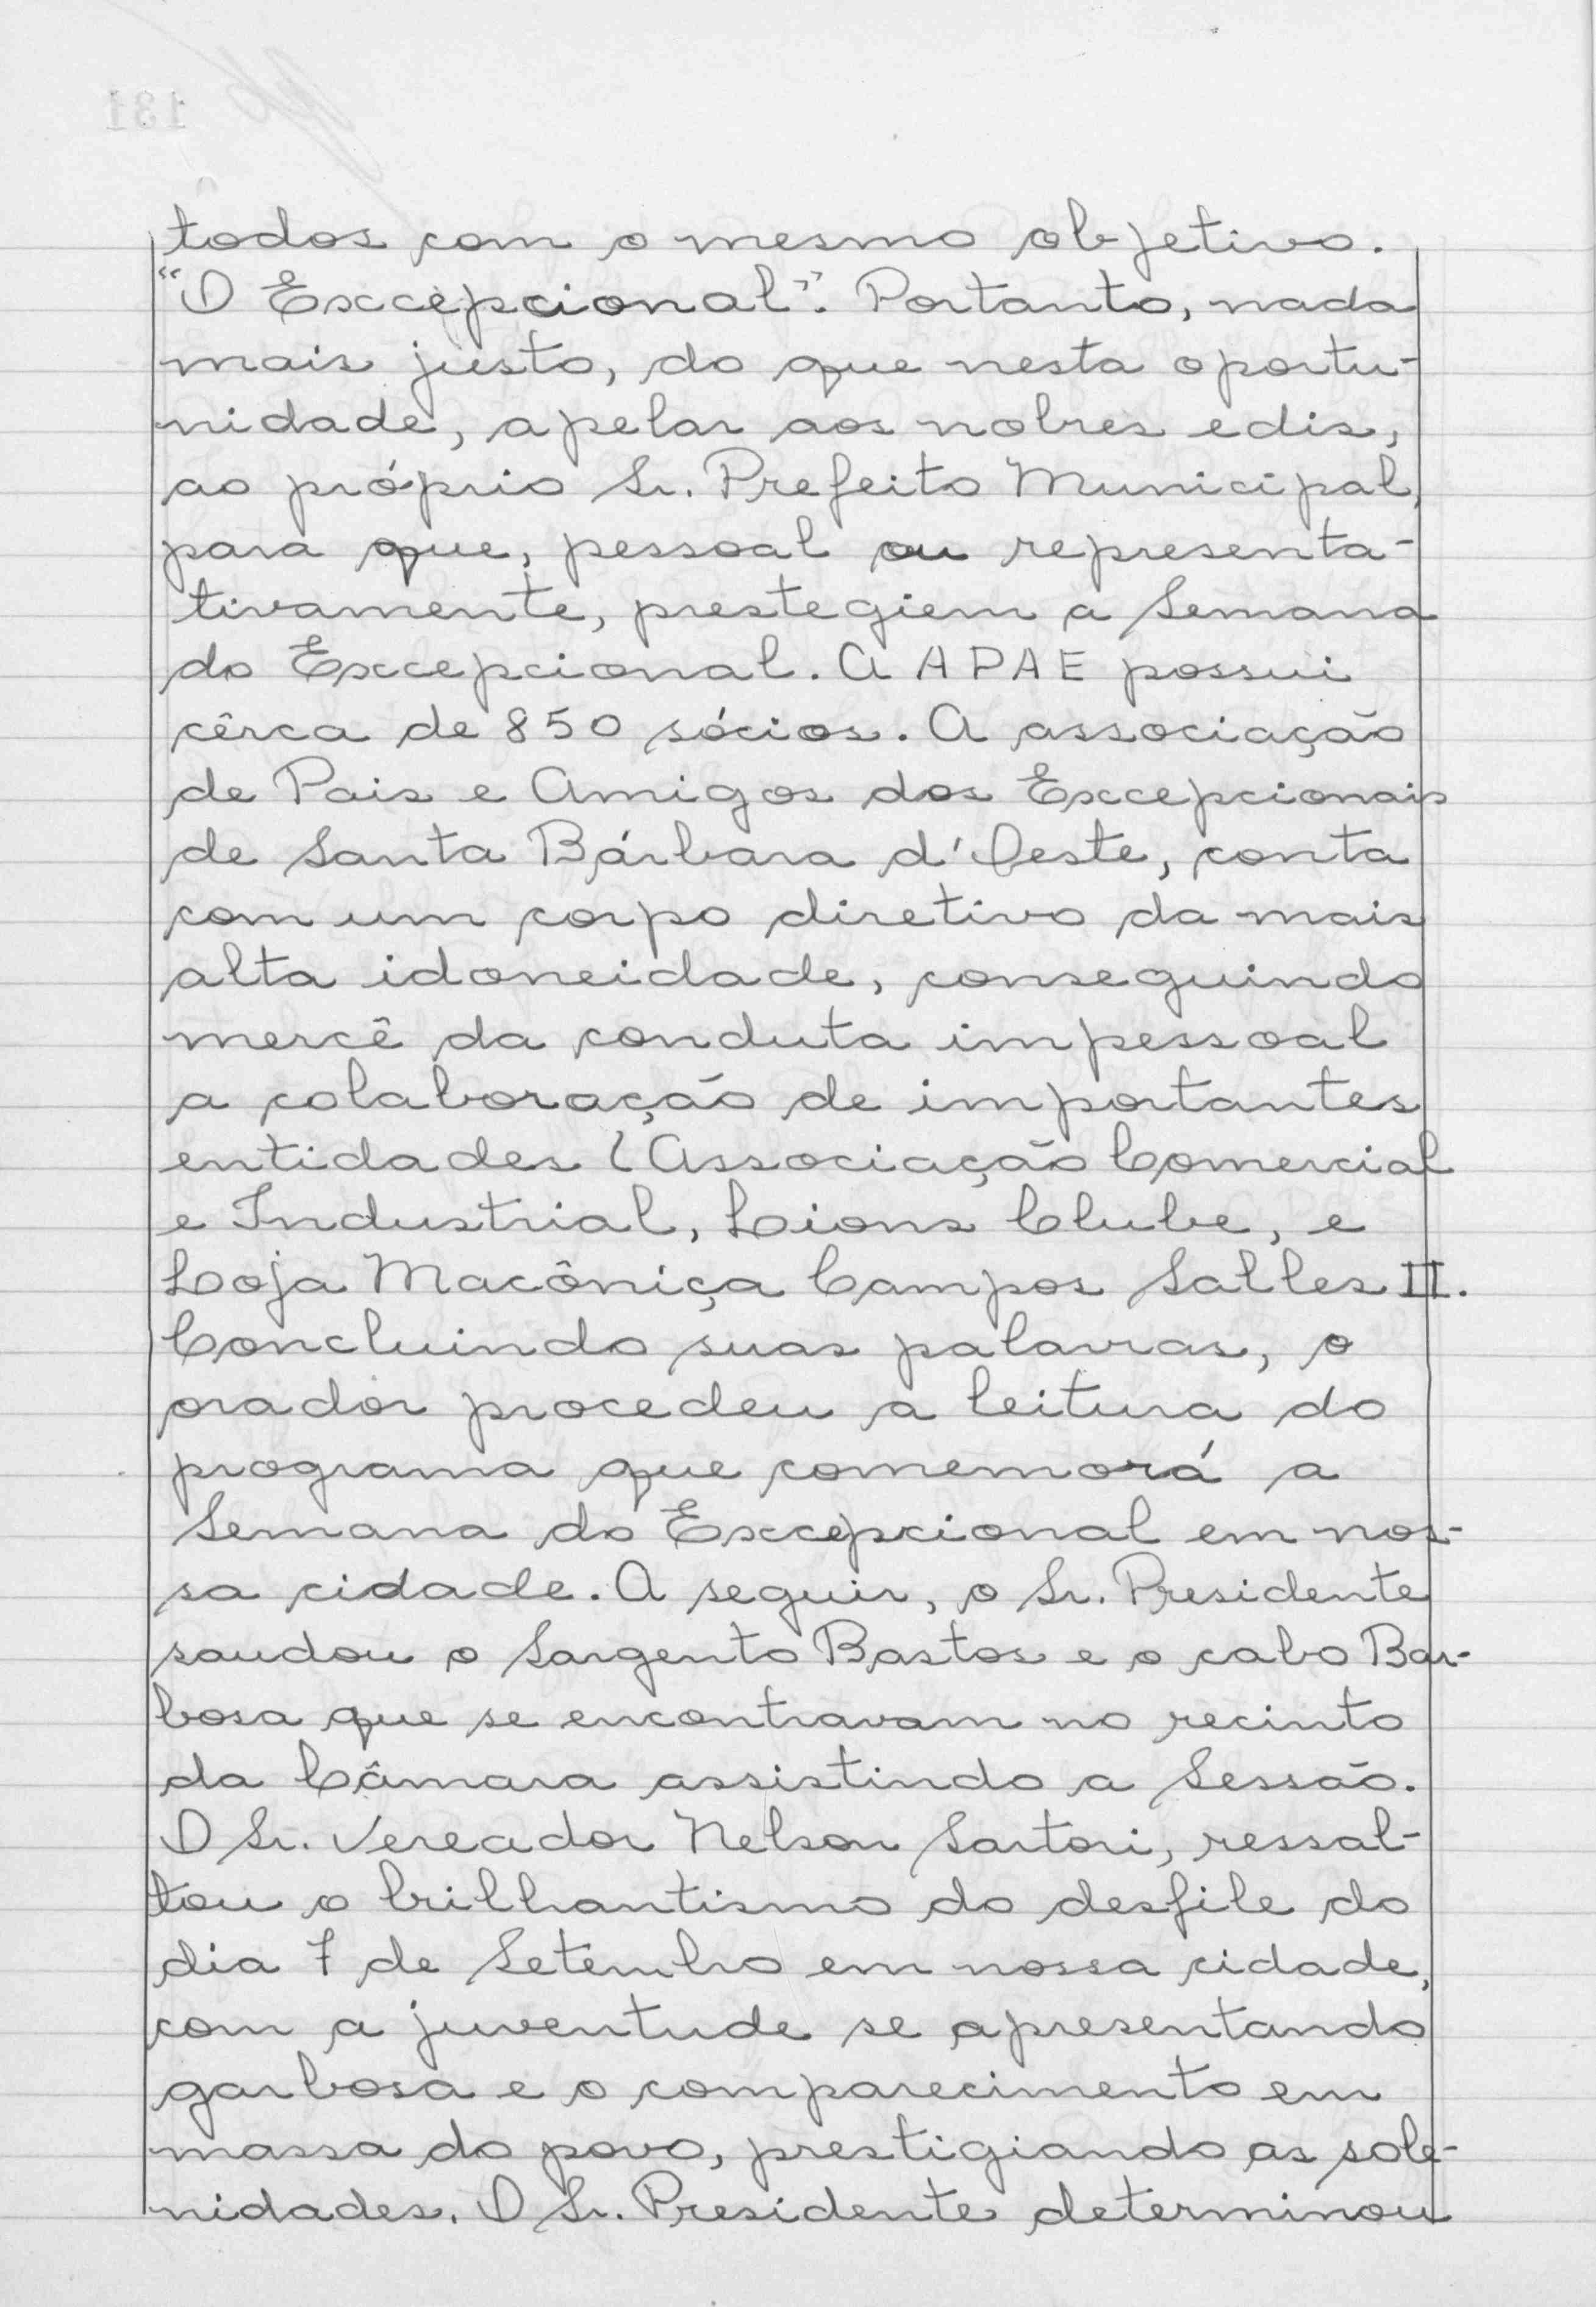 todos com o mesmo objetivo.
"O Excepcional". Portanto, nada
mais justo, do que nesta oportu-
nidade, apelar aos nobres edis,
ao próprio Sr. Prefeito Municipal,
para que, pessoal ou representa-
tivamente, prestegiem a Semana
do Excepcional. A APAE possui
cêrca de 850 sócios. A associação
de Pais e Amigos dos Excepcionais
de Santa Bárbara d'Oeste, conta
com um corpo diretivo da mais
alta idoneidade, conseguindo
mercê da conduta impessoal
a colaboração de importantes
entidades (Associação Comercial
e Industrial, Lions Clube, e
Loja Macôniça Campos Salles II.
Concluindo suas palavras, o
orador procedeu a leitura do
programa que comemorá a
Semana do Excepcional em nos-
sa cidade. A seguir, o Sr. Presidente
saudou o Sargento Bastos e o cabo Bar-
bosa que se encontravam no recinto
da Câmara assistindo a Sessão.
O Sr. Vereador Nelson Sartori, ressal-
tou o brilhantismo do desfile do
dia 7 de Setembro em nossa cidade,
com a juventude se apresentando
garbosa e o comparecimento em
massa do povo, prestigiando as sole-
nidades. O Sr. Presidente determinou